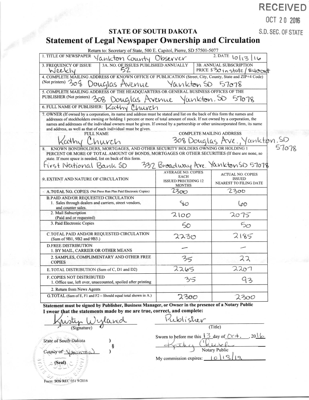 RECEIVED
OCT 20 2016
S.D. SEC. OF STATE
STATE OF SOUTH DAKOTA
Statement of Legal Newspaper Ownership and Circulation
Return to: Secretary of State, 500 E. Capitol, Pierre, SD 57501-5077
1. TITLE OF NEWSPAPER Yankton County Observer 2. DATE 10/13/16
3. FREQUENCY OF ISSUE 3A. NO. OF ISSUES PUBLISHED ANNUALLY 3B. ANNUAL SUBSCRIPTION
Weekly 52 PRICE
4. COMPLETE MAILING ADDRESS OF KNOWN OFFICE OF PUBLICATION (Street, City, County, State and ZIP+4 Code)
(Not printers) 308 Douglas Avenue Yankton SD 57078
5. COMPLETE MAILING ADDRESS OF THE HEADQUARTERS OR GENERAL BUSINESS OFFICES OF THE
PUBLISHER (Not printers) 308 Douglas Avenue Yankton SD 57078
6. FULL NAME OF PUBLISHER Kathy Church
7. OWNER (If owned by a corporation, its name and address must be stated and list on the back of this form the names and
addresses of stockholders owning or holding 1 percent or more of total amount of stock. If not owned by a corporation, the
names and addresses of the individual owners must be given. If owned by a partnership or other unincorporated firm, its name
and address, as well as that of each individual must be given)
FULL NAME COMPLETE MAILING ADDRESS
Kathy Church 308 Douglas Ave, Yankton SD
57078
8. KNOWN BONDHOLDERS, MORTGAGES, AND OTHER SECURITY HOLDERS OWNING OR HOLDING 1
PERCENT OR MORE OF TOTAL AMOUNT OF BONDS, MORTGAGES OR OTHER SECURITIES (If there are none, so
state. If more space is needed, list on back of this form.
First National Bank SD 332 Broadway Ave Yankton SD 57078
9. EXTENT AND NATURE OF CIRCULATION
AVERAGE NO. COPIES EACH ISSUED PRECEDING 12 MONTHS
ACTUAL NO. COPIES ISSUED NEAREST TO FILING DATE
A. TOTAL NO. COPIES 2300 2300
B. PAID AND/OR REQUESTED CIRCULATION
1. Sales through dealers and carriers, street vendors, and counter sales. 80 60
2. Mail Subscription (Paid and or requested) 2100 2075
3. Paid Electronic Copies 50 50
C. TOTAL PAID AND/OR REQUESTED CIRCULATION
(Sum of 9B1, 9B2 and 9B3) 2230 2185
D. FREE DISTRIBUTION
1. BY MAIL, CARRIER OR OTHER MEANS
2. SAMPLES, COMPLIMENTARY AND OTHER FREE COPIES 35 22
E. TOTAL DISTRIBUTION (Sum of C, D1 and D2) 2265 2207
F. COPIES NOT DISTRIBUTED
1. Office use, left over, unaccounted, spoiled after printing 35 93
2. Return from News Agents
G. TOTAL (Sum of E, F1 and F2 - Should equal total shown in A.) 2300 2300
Statement must be signed by Publisher, Business Manager, or Owner in the presence of a Notary Public
I swear that the statements made by me are true, correct, and complete:
Publisher
(Signature) (Title)
State of South Dakota
Sworn to before me this 13 day of Oct. 2016
County of
Notary Public
(Seal)
My commission expires: